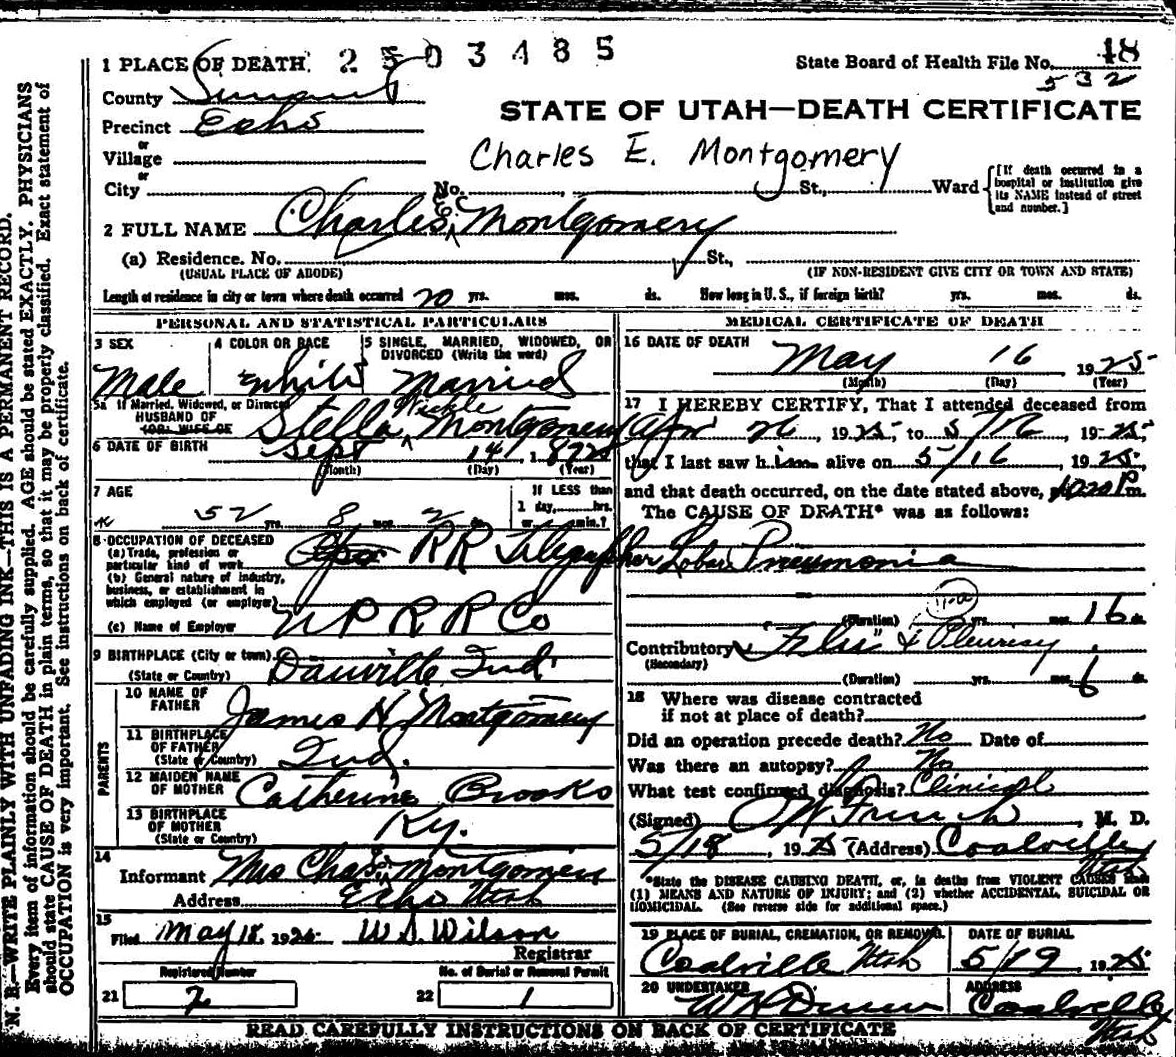 1 PLACE OF DEATH. 2503485
State Board of Health File No. 18
532
County Summit
STATE OF UTAH—DEATH CERTIFICATE
Precinct Echo
or
Village
Charles E. Montgomery
or
City No. St., Ward
[If death occurred in a
hospital or institution give
its NAME instead of street
and number.]
2 FULL NAME Charles E. Montgomery
(a) Residence. No. St.,
(USUAL PLACE OF ABODE) (IF NON-RESIDENT GIVE CITY OR TOWN AND STATE)
Length of residence in city or town where death occurred 20 yrs. mos. ds. How long in U. S., if foreign birth? yrs. mos. ds.
PERSONAL AND STATISTICAL PARTICULARS
3 SEX
Male
4 COLOR OR RACE
White
5 SINGLE, MARRIED, WIDOWED, OR
DIVORCED (Write the word)
Married
5a If Married, Widowed, or Divorced
HUSBAND OF
(OR) WIFE OF
Stella Montgomery
6 DATE OF BIRTH Sept 14 1872
(Month) (Day) (Year)
7 AGE
52 yrs. 8 mos. 2 ds.
If LESS than
1 day, hrs.
or min.?
8 OCCUPATION OF DECEASED
(a) Trade, profession or
particular kind of work RR Telegrapher
(b) General nature of industry,
business, or establishment in
which employed (or employer)
(c) Name of Employer U P R R Co
9 BIRTHPLACE (City or town) Danville Ind
(State or Country)
PARENTS
10 NAME OF
FATHER James H. Montgomery
11 BIRTHPLACE
OF FATHER
(State or Country) Ind.
12 MAIDEN NAME
OF MOTHER Catherine Brooks
13 BIRTHPLACE
OF MOTHER
(State or Country) Ky.
14
Informant Mrs Chas E Montgomery
Address Echo Utah
15
Filed May 18, 1925 W. S. Wilson
Registrar
Registered Number No. of Burial or Removal Permit
21 7 22 1
MEDICAL CERTIFICATE OF DEATH
16 DATE OF DEATH
May 16 1925
(Month) (Day) (Year)
17 I HEREBY CERTIFY, That I attended deceased from
Apr 26, 1925, to 5/16, 1925,
that I last saw him alive on 5/16, 1925,
and that death occurred, on the date stated above, 1020 P m.
The CAUSE OF DEATH* was as follows:
Lobar Pneumonia
(Duration) yrs. mos. 16 ds.
Contributory "Flu" & Pleurisy
(Secondary)
(Duration) yrs. mos. 6 ds.
18 Where was disease contracted
if not at place of death?
Did an operation precede death? No Date of
Was there an autopsy? No
What test confirmed diagnosis? Clinical
(Signed) French, M. D.
5/18, 1925 (Address) Coalville
Utah
*State the DISEASE CAUSING DEATH, or, in deaths from VIOLENT CAUSES state
(1) MEANS AND NATURE OF INJURY; and (2) whether ACCIDENTAL, SUICIDAL OR
HOMICIDAL. (See reverse side for additional space.)
19 PLACE OF BURIAL, CREMATION, OR REMOVAL
Coalville Utah
DATE OF BURIAL
5/19, 1925
20 UNDERTAKER
ADDRESS
Coalville
Utah
READ CAREFULLY INSTRUCTIONS ON BACK OF CERTIFICATE
N. B.—WRITE PLAINLY WITH UNFADING INK—THIS IS A PERMANENT RECORD.
Every item of information should be carefully supplied. AGE should be stated EXACTLY. PHYSICIANS
should state CAUSE OF DEATH in plain terms, so that it may be properly classified. Exact statement of
OCCUPATION is very important. See instructions on back of certificate.